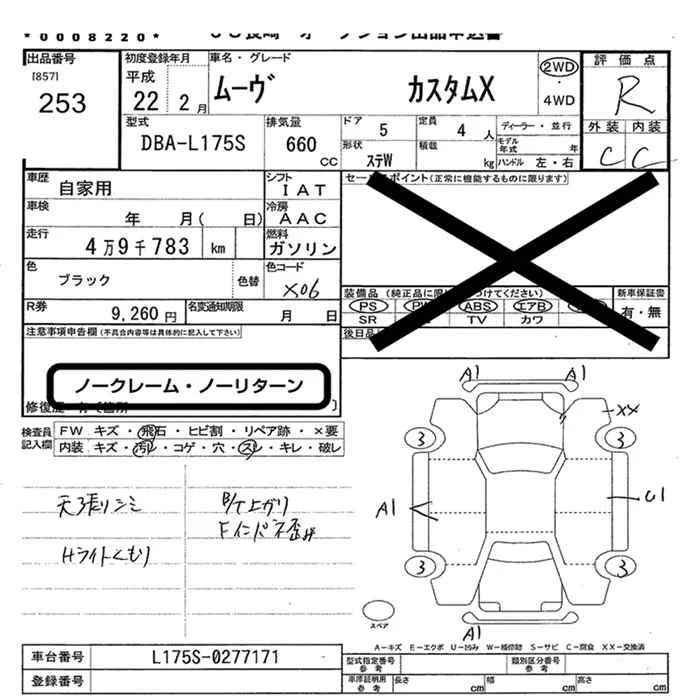 *0008220*
出品番号 初度登録年月 車名・グレード 2WD ・ 4WD 評価点
[857] 253 平成 22 2月 ムーヴ カスタムX R
型式 排気量 ドア 5 定員 4人 ディーラー・並行 外装 内装
DBA-L175S 660 CC 形状 ステW 積載 kg モデル年式 年 ハンドル 左・右 C C
車歴 自家用 シフト IAT セー ポイント(正常に機能するものに限ります)
車検 年 月( 日) 冷房 AAC
走行 4万9千783 km 燃料 ガソリン
色 ブラック 色替 色コード X06
装備品 (純正品に限 つけてください) 新車保証書
PS PW ABS エアB 有・無
R券 9,260円 名変通知期限 月 日 SR TV カワ
注意事項申告欄(不具合内容等は具体的に記入して下さい) 後日品
ノークレーム・ノーリターン
検査員記入欄 FW キズ・飛石・ヒビ割・リペア跡・×要
内装 キズ・汚れ・コゲ・穴・スレ・キレ・破レ
天張りシミ B/T上がり
Fインパネ歪み
Hライトくもり
A1 A1
XX
3 3
A1 U1
3 3
A1
スペア
A-キズ E-エクボ U-凹み W-補修跡 S-サビ C-腐食 XX-交換済
車台番号 L175S-0277171 型式指定番号 参考 類別区分番号 参考
登録番号 車庫証明用 参考 長さ cm 幅 cm 高さ cm